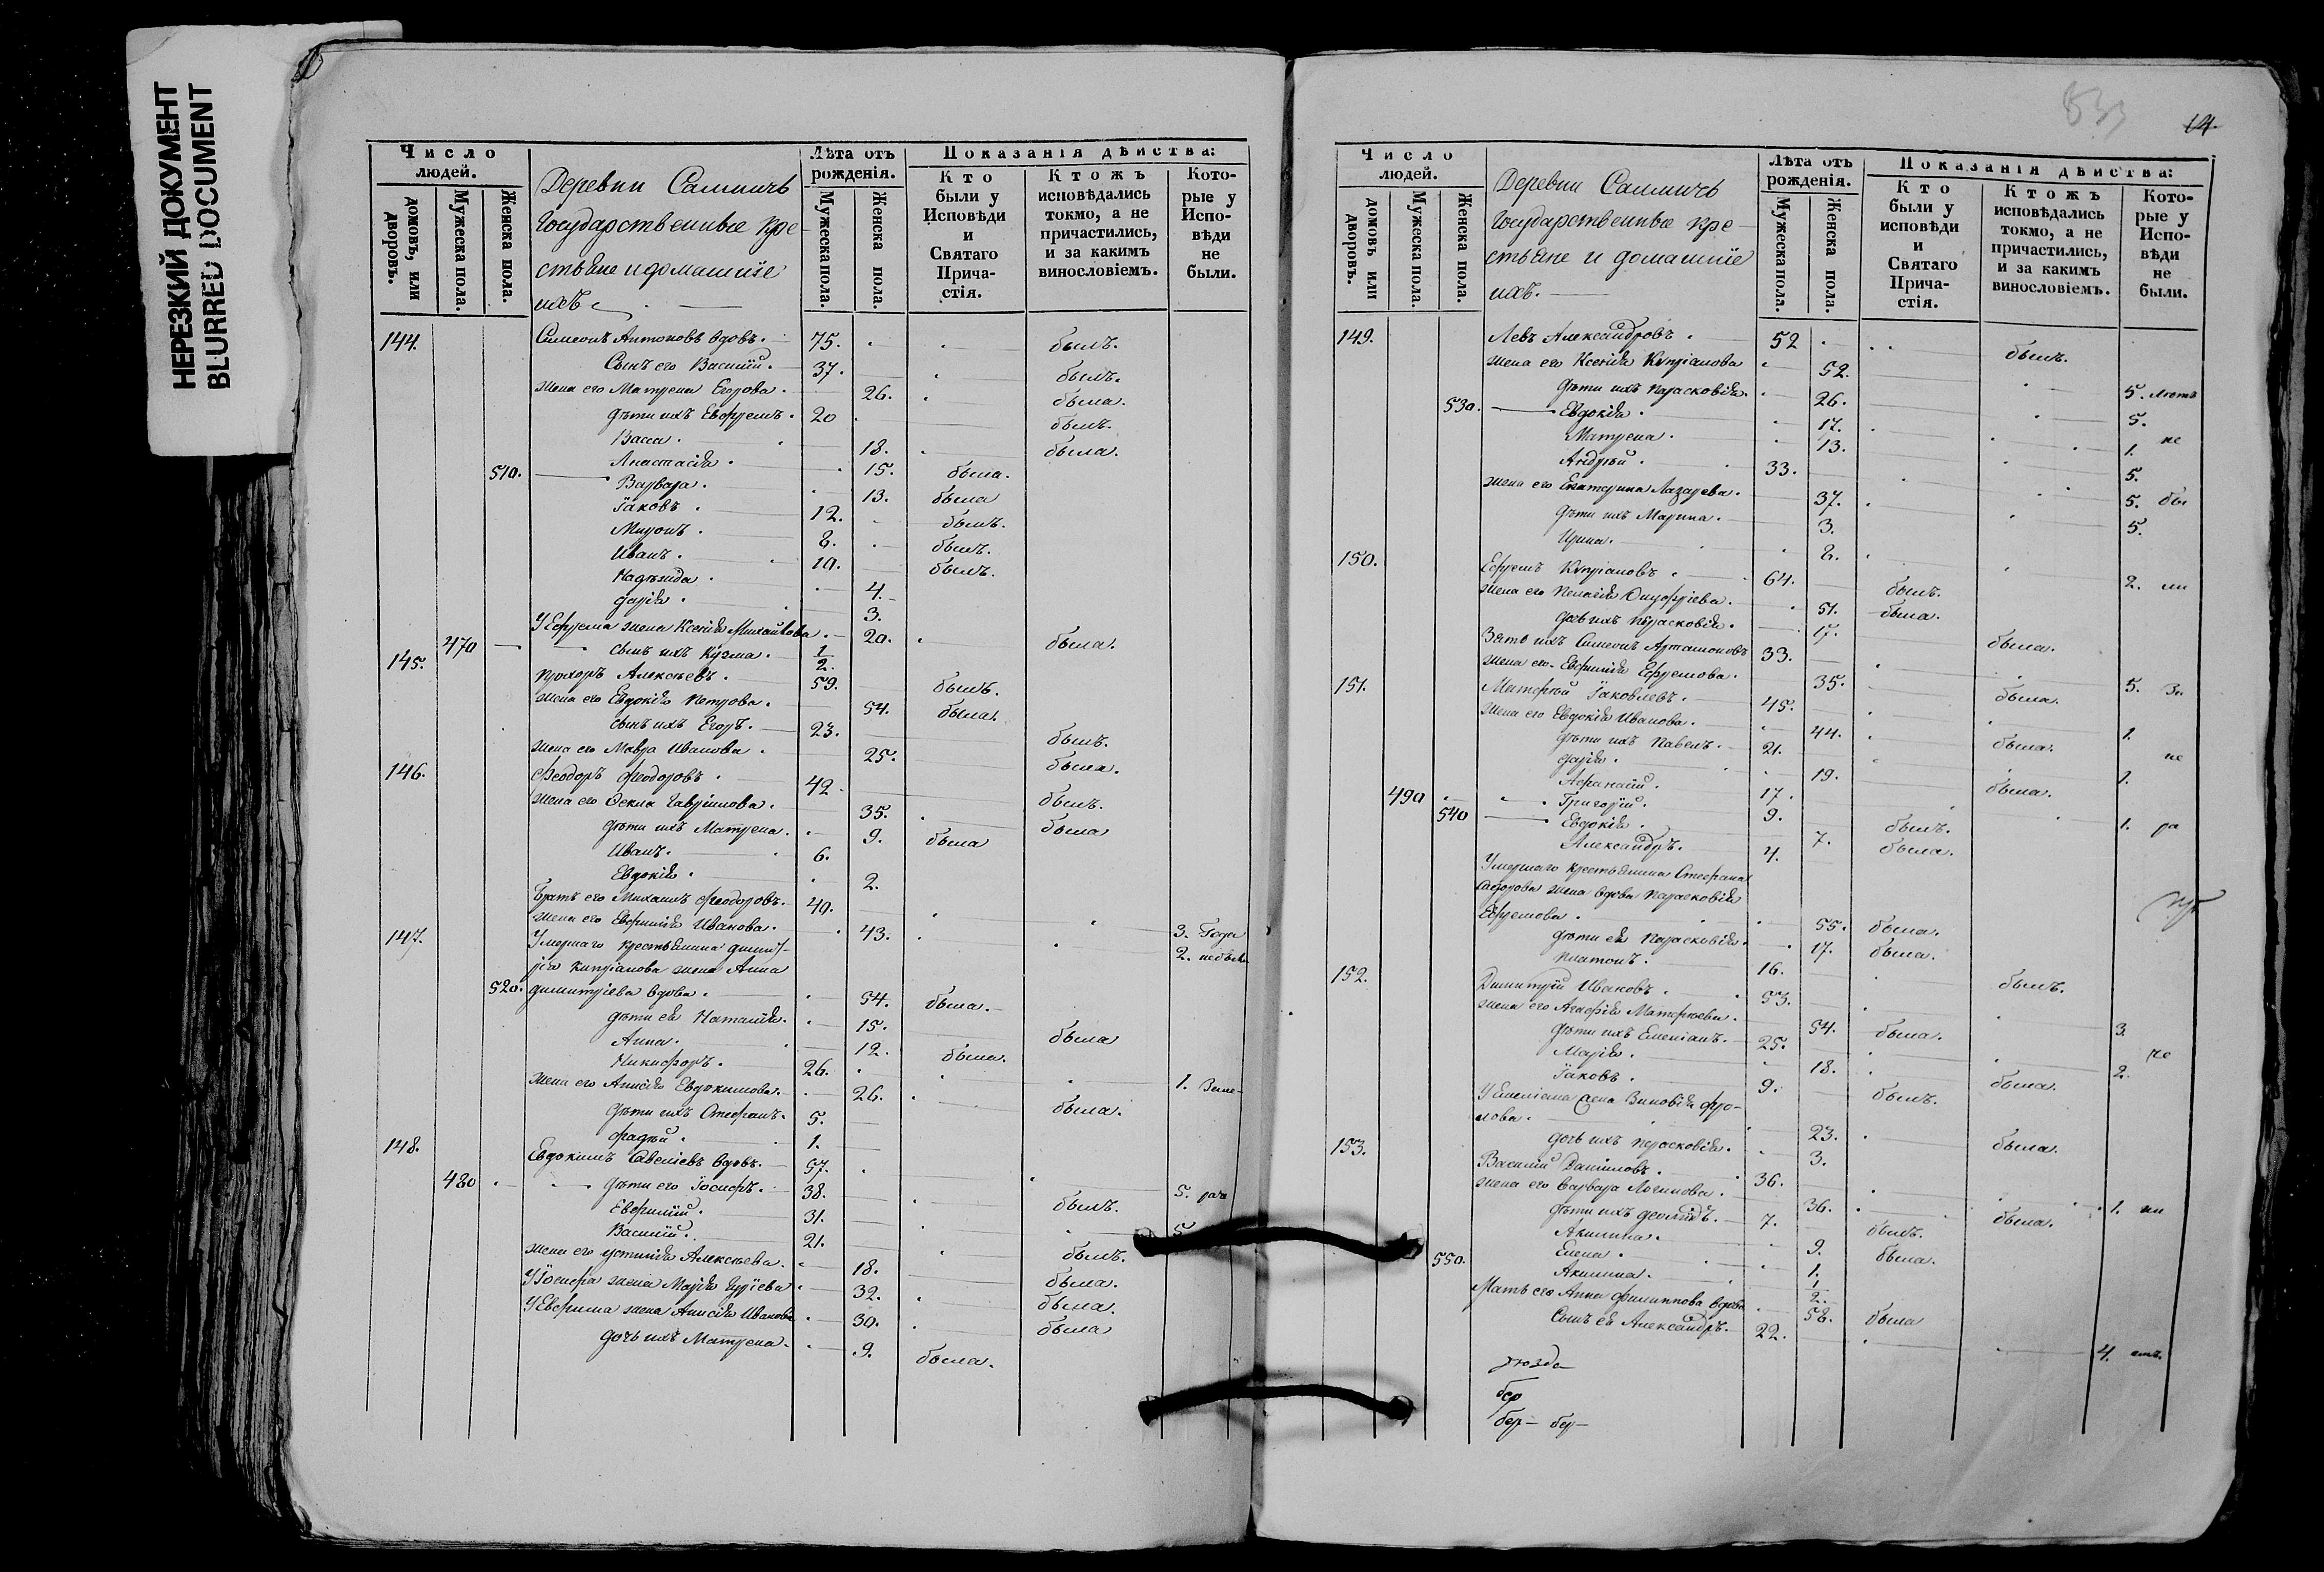 НЕРЕЗКИЙ ДОКУМЕНТ
BLURRED DOCUMENT
Число людей.
домовъ, или дворовъ.
Мужеска пола.
Женска пола.
Деревни
Государственные кре-
стьяне и домашніе
ихъ
Лѣта отъ рожденія.
Мужеска пола.
Женска пола.
Показанія дѣйства:
Кто были у Исповѣди и Святаго Причастія.
Ктожъ исповѣдались токмо, а не причастились, и за какимъ винословіемъ.
Которые у Исповѣди не были.
144. Симеонъ Антоновъ вдовъ. 75. былъ.
Сынъ его Василій. 37. былъ.
жена его Матрена Егорова. 26. была.
дѣти ихъ Евфремъ. 20 былъ.
Васса. 18. была.
Анастасія. 15. была.
510. Варвара. 13. была
Іаковъ. 12. былъ.
Миронъ. 8. былъ.
Иванъ. 10. былъ.
Надежда. 4.
Дарія. 3.
У Ефрема жена Ксенія Михайлова. 20. была.
470 сынъ ихъ Кузма. 1/2.
145. Прохоръ Алексѣевъ. 59. былъ.
жена его Евдокія Петрова. 54. была.
сынъ ихъ Егоръ. 23. былъ.
жена его Мавра Иванова. 25. была.
146. Феодоръ Феодоровъ. 42. былъ.
жена его Ѳекла Гавріилова. 35. была
дѣти ихъ Матрена. 9. была
Иванъ. 6.
Евдокія. 2.
Братъ его Михаилъ Феодоровъ. 40. 3. года
жена его Евфимія Иванова. 43. 2. не были
147. Умершаго крестьянина Димит-
рія Кипріанова жена Анна
520. Димитріева вдова. 54. была.
дѣти ея Наталія. 15. была
Анна. 12. была.
Никифоръ. 26. 1.
жена его Анисія Евдокимова. 26. была.
дѣти ихъ Стефанъ. 5.
Фадѣй. 1.
148. Евдокимъ Савеліевъ вдовъ. 57. 5.
480 дѣти его Іосифъ. 38. былъ.
Евфимій. 31. 5
Василій. 21. былъ.
жена его Устинія Алексѣева. 18. была.
У Іосифа жена Марія Гуріева 32. была.
У Евфима жена Анисія Иванова 30. была
дочь ихъ Матрена. 9. была.
533
14.
Число людей.
домовъ или дворовъ.
Мужеска пола.
Женска пола.
Деревни
Государственные кре-
стьяне и домашніе
ихъ.
Лѣта отъ рожденія.
Мужеска пола.
Женска пола.
Показанія дѣйства:
Кто были у исповѣди и Святаго Причастія.
Ктожъ исповѣдались токмо, а не причастились, и за какимъ винословіемъ.
Которые у Исповѣди не были.
149. Левъ Александровъ. 52 былъ.
жена его Ксенія Кипріанова 52. 5. лѣтъ
дѣти ихъ Парасковія. 26. 5.
530. Евдокія. 17. 1. не
Матрена. 13. 5.
Андрей. 33. 5. бы
жена его Екатерина Лазарева. 37. 5.
дѣти ихъ Марина. 3.
Ирина. 8.
150. Ефремъ Кипріановъ. 64. былъ. 2. ли
жена его Пелагія Онуфріева. 51. была.
дочь ихъ Парасковія. 17. была.
Зять ихъ Симеонъ Артамоновъ 33. 5. За
жена его Евфимія Ефремова. 35. была.
151. Матфѣй Іаковлевъ. 45. 1.
жена его Евдокія Иванова. 44. была. не
дѣти ихъ Павелъ. 21. 1.
Дарія. 19. была.
Афанасій. 17. 1. ра
490 Григорій. 9. былъ.
540 Евдокія. 7. была.
Александръ. 4.
Умершаго крестьянина Стефана
Сидорова жена вдова Парасковія
Ефремова. 55. была.
дѣти ея Парасковія. 17. была.
Платонъ. 16. былъ.
152. Димитрій Ивановъ. 53. 3.
жена его Агафія Матфѣева. 54. была. не
дѣти ихъ Емеліанъ. 25. 2.
Марія. 18. была.
Іаковъ. 9. былъ.
У Емеліана жена Зиновія Фро-
лова. 23. была.
дочь ихъ Парасковія. 3.
153. Василій Даніиловъ. 36. 1.
жена его Варвара Логинова. 36. была.
дѣти ихъ Деомидъ. 7. былъ.
Акилина. 9. была.
550. Елена. 1.
Акилина. 1/2.
Мать его Анна Филиппова вдова 58. была
Сынъ ея Александръ. 22. 4.
бер
бер— бер—